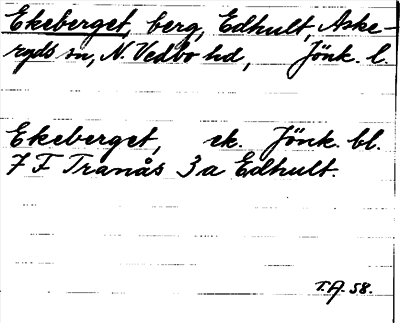 Ekeberget, berg, Edhult, Aske-
ryds sn, N. Vedbo hd, Jönk. l.
Ekeberget, ek. Jönk. bl.
7 F Tranås 3a Edhult.
T.A. 58.